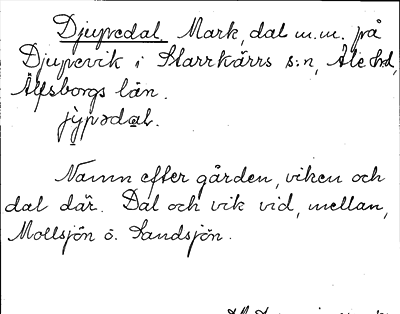 Djupedal Mark, dal m.m. på
Djupevik i Starrkärrs s:n, Ale hd,
Älfsborgs län.
jỳpədal.
Namn efter gården, viken och
dal där. Dal och vik vid, mellan,
Mollsjön o. Sandsjön.